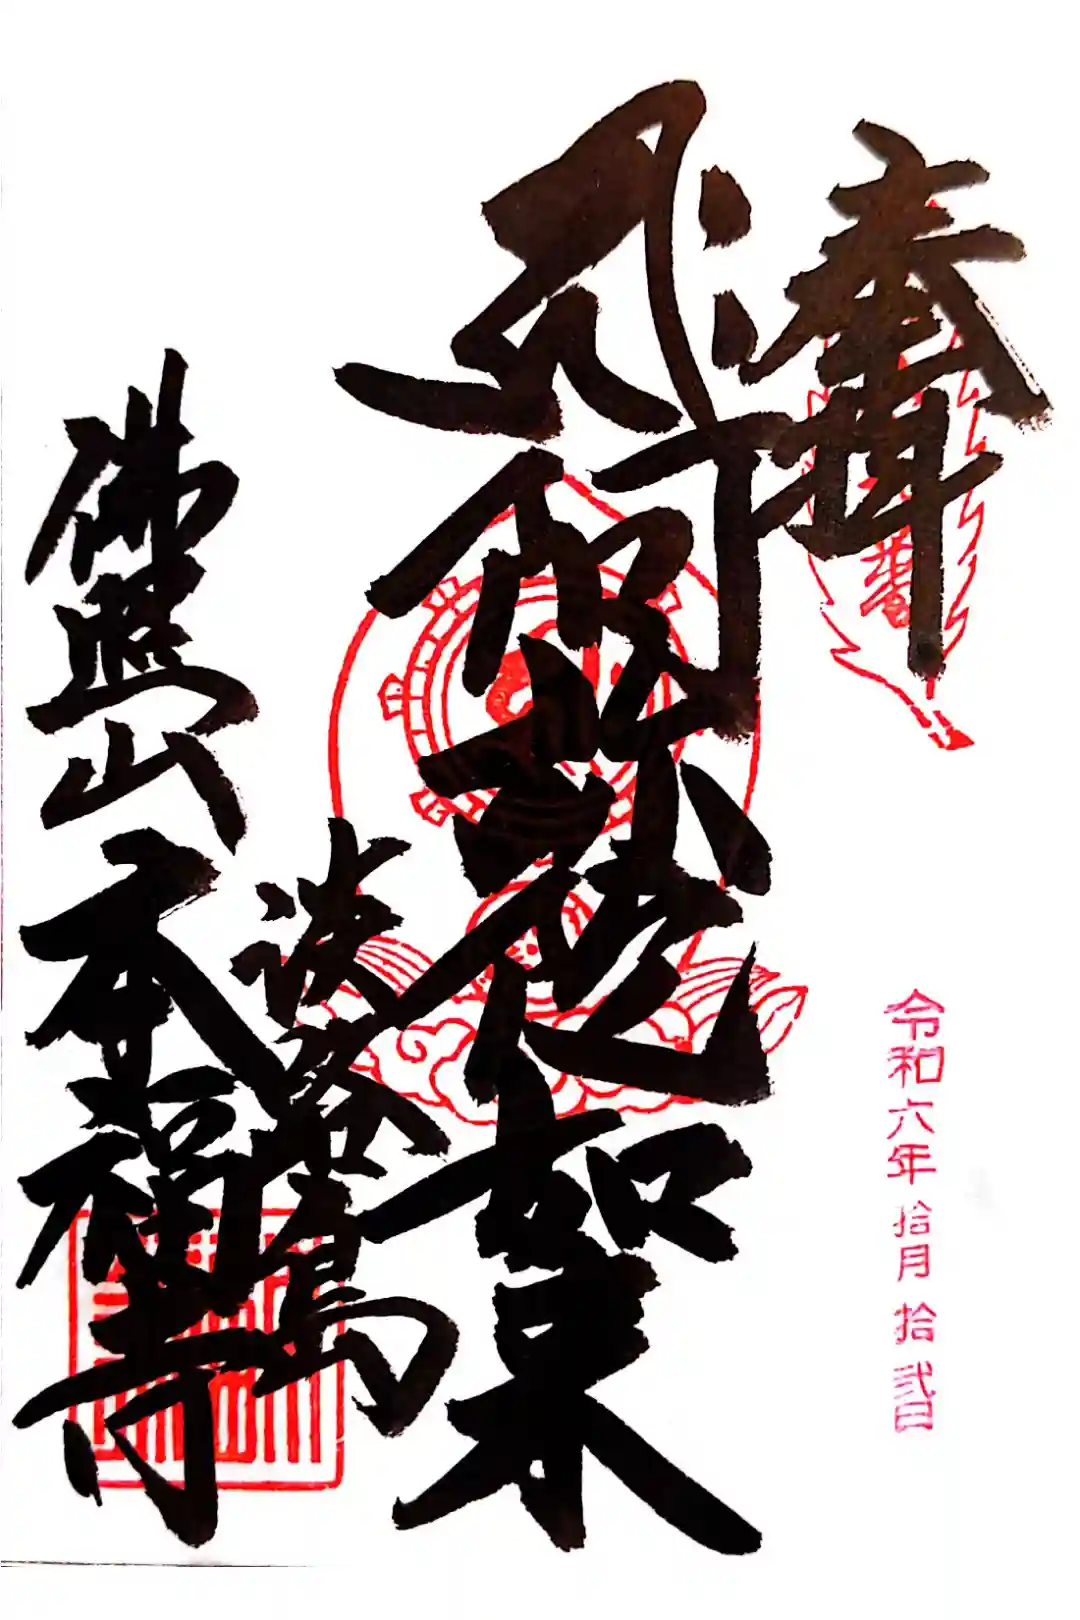 奉拝
阿弥陀如来
淡路島
佛照山 本福寺
令和六年拾月拾弐日